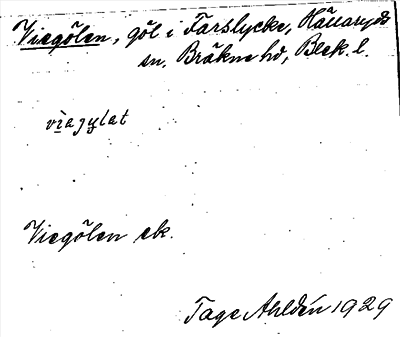 Viegölen, göl i Farslycke, Hällaryds
sn, Bräkne hd, Blek. l.
viagylat
Viegölen ek.
Tage Ahldén 1929